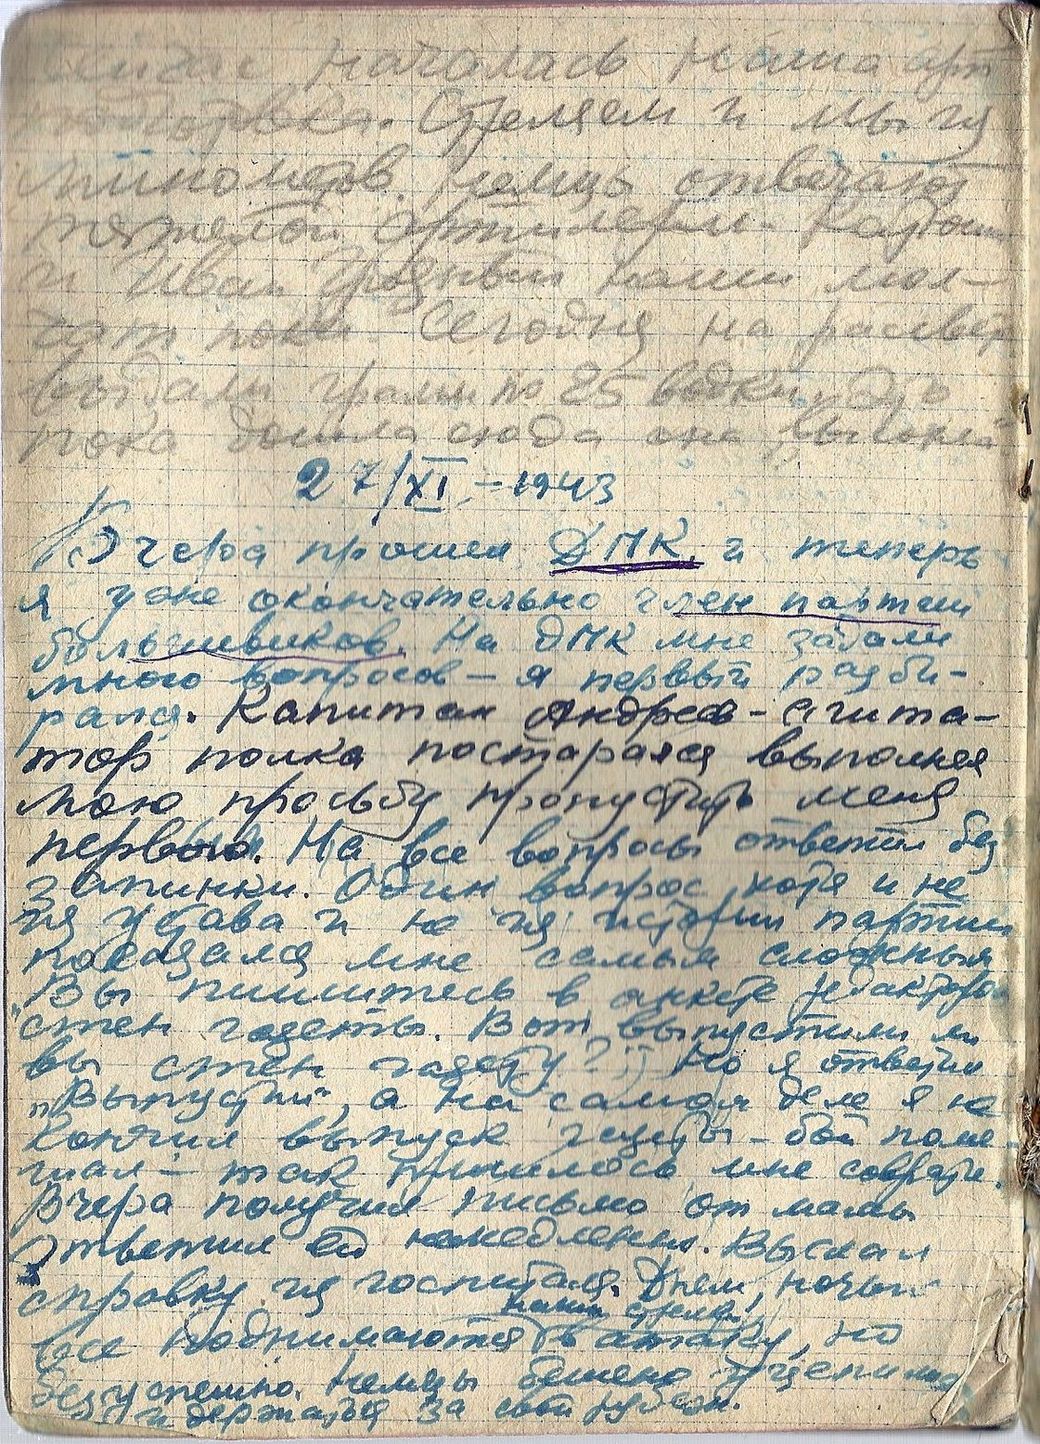 началась наша арт
подготовка. Стреляем и мы из
миномётов. Немцы отвечают
тяжелой артилерии. Катюши
и Иван Грозный наши мол-
чат пока. Сегодня на рассвете
выдали грамм по 25 водки. До
пока дошла сюда она
27/XI – 1943
Вчера прошел ДПК и теперь
я уже окончательно член партии
большевиков. На ДПК мне задали
много вопросов – я первый разби-
рался. Капитан Андреев – агита-
тор полка постарался выполняя
мою просьбу пропустить меня
первого. На все вопросы ответил без
запинки. Один вопрос хотя и не
из устава и не из истории партии
показался мне самым сложным
"Вы пишитесь в анкете редактором
стен газеты. Вот выпустили ли
вы стен газету?" Но я ответил
"Выпустил", а на самом деле я не
кончил выпуск газеты – бой поме-
шал – так пришлось мне соврать.
Вчера получил письмо от мамы
Ответил ей немедленно. Выслал
справку из госпиталя. Днем, ночью
наши стрелки
все поднимаются в атаку, но
безуспешно. Немцы бешено уцепились
и держатся за свой рубеж.